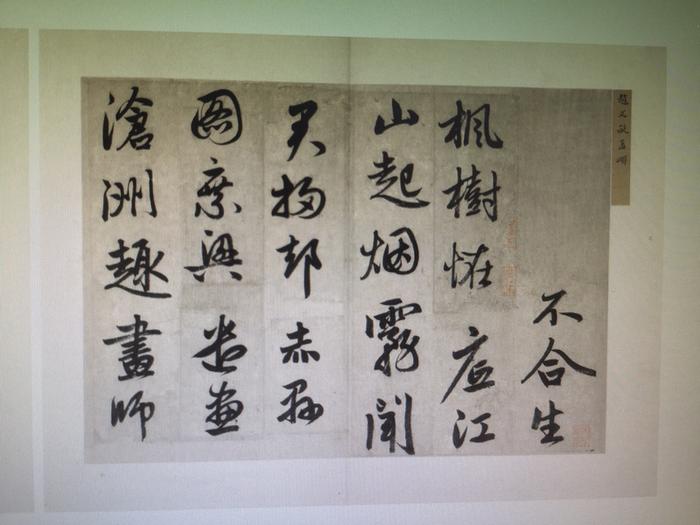 趙文敏
不合生
楓樹恠底江
山起烟霧聞
君掃却赤縣
圖乗興遣畫
滄洲趣畫師